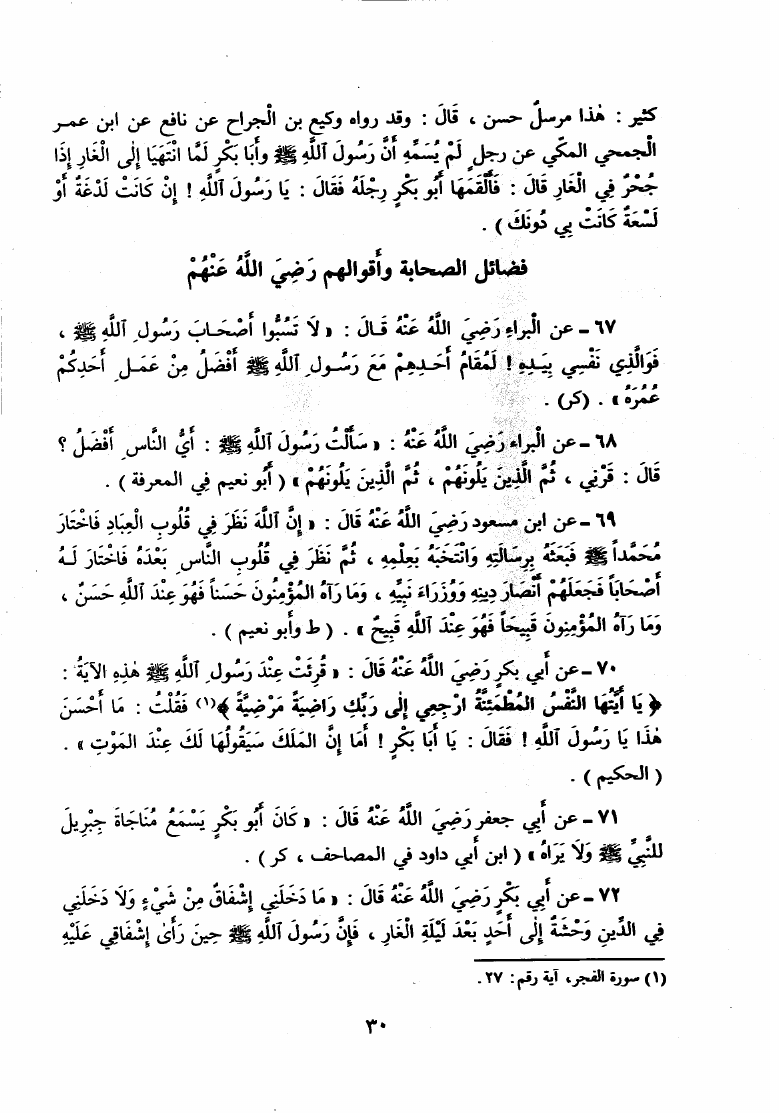 كثير : هٰذا مرسلٌ حسن ، قَالَ : وقد رواه وكيع بن الْجراح عن نافع عن ابن عمـر
الْجمحي المكّي عن رجلٍ لَمْ يُسَمِّهِ أَنَّ رَسُولَ ٱللَّهِ ﷺ وأَبَا بَكْرٍ لَمَّا انْتَهَيَا إِلَى الْغَارِ إِذَا
جُحْرٌ فِي الْغَارِ قَالَ : فَأَلْقَمَهَا أَبُو بَكْرٍ رِجْلَهُ فَقَالَ : يَا رَسُولَ ٱللَّهِ ! إِنْ كَانَتْ لَدْغَةٌ أَوْ
لَسْعَةٌ كَانَتْ بِي دُونَكَ ) .
فضائل الصحابة وأقوالهم رَضِيَ اللَّهُ عَنْهُمْ
٦٧ ـ عن الْبراءِ رَضِيَ اللَّهُ عَنْهُ قَـالَ : « لَا تَسُبُّوا أَصْحَـابَ رَسُولِ ٱللَّهِ ﷺ ،
فَوَالَّذِي نَفْسِي بِيَـدِهِ ! لَمُقَامُ أَحَـدِهِمْ مَعَ رَسُـولِ ٱللَّهِ ﷺ أَفْضَلُ مِنْ عَمَـلِ أَحَدِكُمْ
عُمُرَهُ » . (كر) .
٦٨ ـ عن الْبراءِ رَضِيَ اللَّهُ عَنْهُ : « سَأَلْتُ رَسُولَ ٱللَّهِ ﷺ : أَيُّ النَّاسِ أَفْضَلُ ؟
قَالَ : قَرْنِي ، ثُمَّ الَّذِينَ يَلُونَهُمْ ، ثُمَّ الَّذِينَ يَلُونَهُمْ » ( أَبُو نعيم فِي المعرفة ) .
٦٩ ـ عن ابن مسعود رَضِيَ اللَّهُ عَنْهُ قَالَ : « إِنَّ ٱللَّهَ نَظَرَ فِي قُلُوبِ الْعِبَادِ فَاخْتَارَ
مُحَمَّداً ﷺ فَبَعَثَهُ بِرِسَالَتِهِ وَانْتَخَبَهُ بِعِلْمِهِ ، ثُمَّ نَظَرَ فِي قُلُوبِ النَّاسِ بَعْدَهُ فَاخْتَارَ لَـهُ
أَصْحَاباً فَجَعَلَهُمْ أَنْصَارَ دِينِهِ وَوُزَرَاءَ نَبِيِّهِ ، وَمَا رَآهُ الْمُؤْمِنُونَ حَسَناً فَهُوَ عِنْدَ ٱللَّهِ حَسَنٌ ،
وَمَا رَآهُ الْمُؤْمِنُونَ قَبِيحَاً فَهُوَ عِنْدَ ٱللَّهِ قَبِيحٌ » . ( ط وأبو نعيم ) .
٧٠ ـ عن أَبي بكرٍ رَضِيَ اللَّهُ عَنْهُ قَالَ : « قُرِئَتْ عِنْدَ رَسُولِ ٱللَّهِ ﷺ هٰذِهِ الآيَةُ :
﴿ يَا أَيَّتُهَا النَّفْسُ الْمُطْمَئِنَّةُ ارْجِعِي إِلَى رَبِّكِ رَاضِيَةً مَرْضِيَّةً ﴾(١) فَقُلْتُ : مَا أَحْسَنَ
هٰذَا يَا رَسُولَ ٱللَّهِ ! فَقَالَ : يَا أَبَا بَكْرٍ ! أَمَا إِنَّ الْمَلَكَ سَيَقُولُهَا لَكَ عِنْدَ المَوْتِ » .
( الحكيم ) .
٧١ ـ عن أَبِي جعفر رَضِيَ اللَّهُ عَنْهُ قَالَ : « كَانَ أَبُو بَكْرٍ يَسْمَعُ مُنَاجَاةَ جِبْرِيلَ
لِلنَّبِيِّ ﷺ وَلَا يَرَاهُ » ( ابن أبي داود في المصاحف ، كر ) .
٧٢ ـ عن أَبي بَكْرٍ رَضِيَ اللَّهُ عَنْهُ قَالَ : « مَا دَخَلَنِي إِشْفَاقٌ مِنْ شَيْءٍ وَلَا دَخَلَنِي
فِي الدِّينِ وَحْشَةٌ إِلَى أَحَدٍ بَعْدَ لَيْلَةِ الْغَارِ ، فَإِنَّ رَسُولَ ٱللَّهِ ﷺ حِينَ رَأَىٰ إِشْفَاقِي عَلَيْهِ
(١) سورة الفجر، آية رقم: ٢٧ .
٣٠